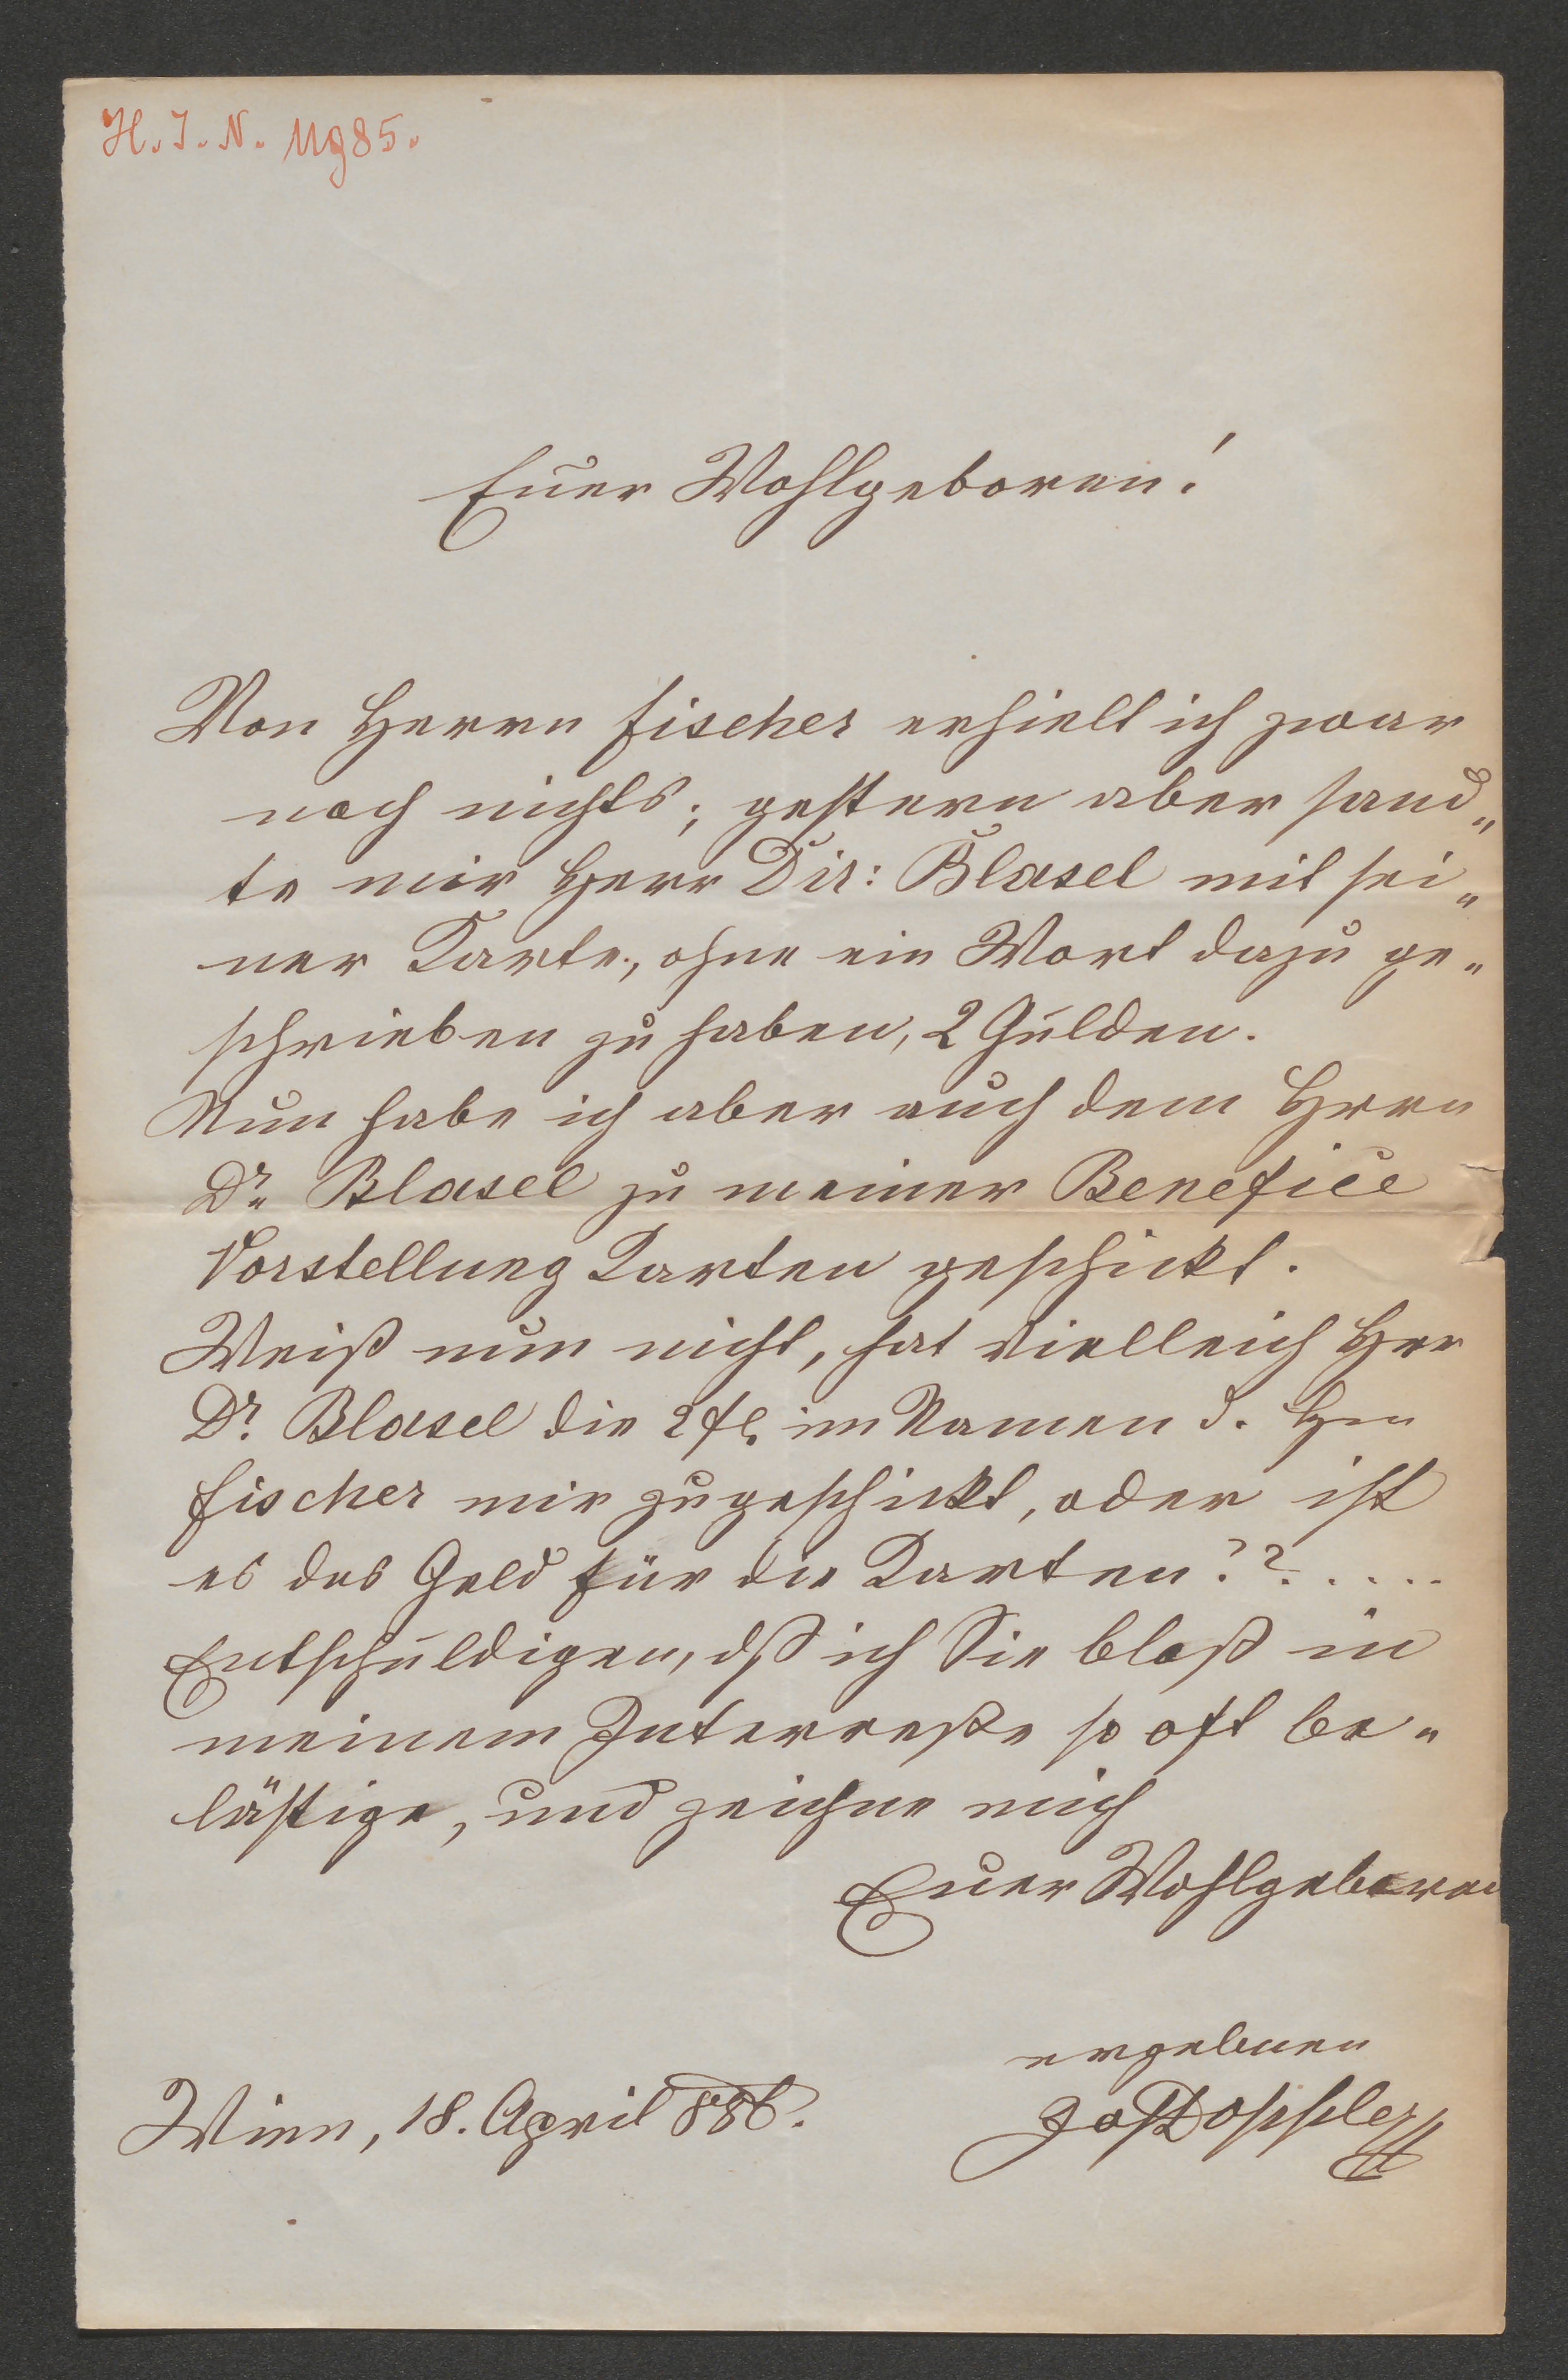 H. I. N. 11985.
Euer Wohlgeboren!
Von Herrn Fischer erhielt ich zwar
noch nichts; gestern aber sand„
te mir Herr Dir: Blasel mit sei„
ner Karte, ohne ein Wort dazu ge„
schrieben zu haben, 2 Gulden.
Nun habe ich aber auch dem Hrrn
Dr. Blasel zu meiner Benefice
Vorstellung Karten geschickt.
Weiß nun nicht, hat vielleich Her
Dr. Blasel die 2 fl. im Namen d. Hrn
Fischer mir zugeschickt, oder ist
es das Geld für die Karten??.....
Entschuldigen, dß ich Sie bloß in
meinem Interreße so oft be„
lästige, und zeichne mich
Euer Wohlgeboren
ergebnen
Jos Doppler
Wien, 18. April 886.